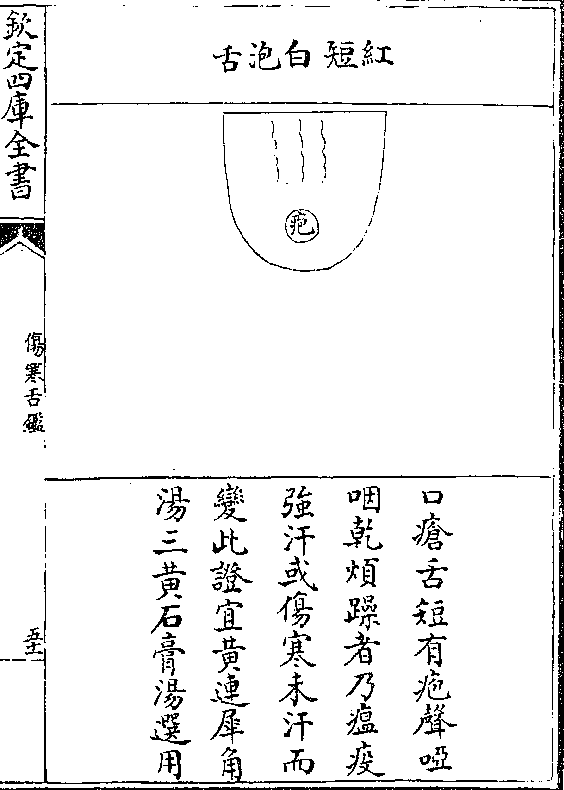 紅短白泡舌
疱
口瘡舌短有疱聲啞
咽乾煩躁者乃瘟疫
強汗或傷寒未汗而
變此證宜黃連犀角
湯三黃石膏湯選用
欽定四庫全書
傷寒舌鑑